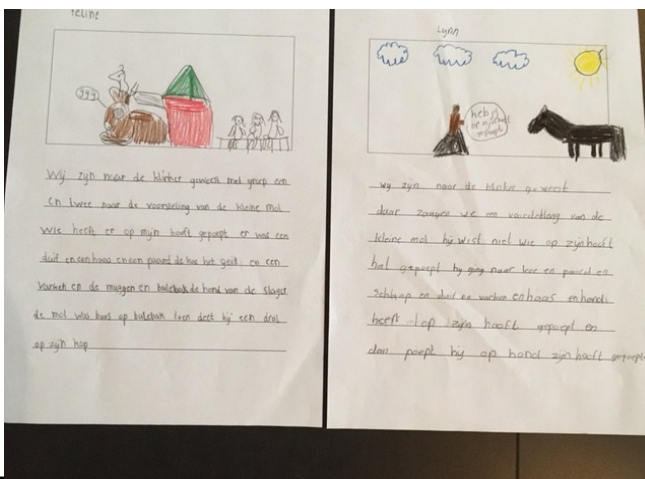 feline
ggg
Wij zijn naar de blinker geweest met groep een
en twee naar de voorsteling van de kleine mol
wie heeft er op mijn hooft gepoept er was een
duif en een haas en een paard de koe het geit en een
varken en de muggen en bulebak de hond van de slager
de mol was boos op bulebak toen deet hij een drol
op zijn kop
Lynn
heb jij
op mijn hooft
gepoept
wij zijn naar de blinker geweest
daar zaagen we een voorsteling van de
kleine mol hij wist niet wie op zijn hooft
hat gepoept hij ging naar koe en paard en
schaap en duif en varken en haas en hond
heeft op zijn hooft gepoept en
dan poept hij op hond zijn hooft gepoept